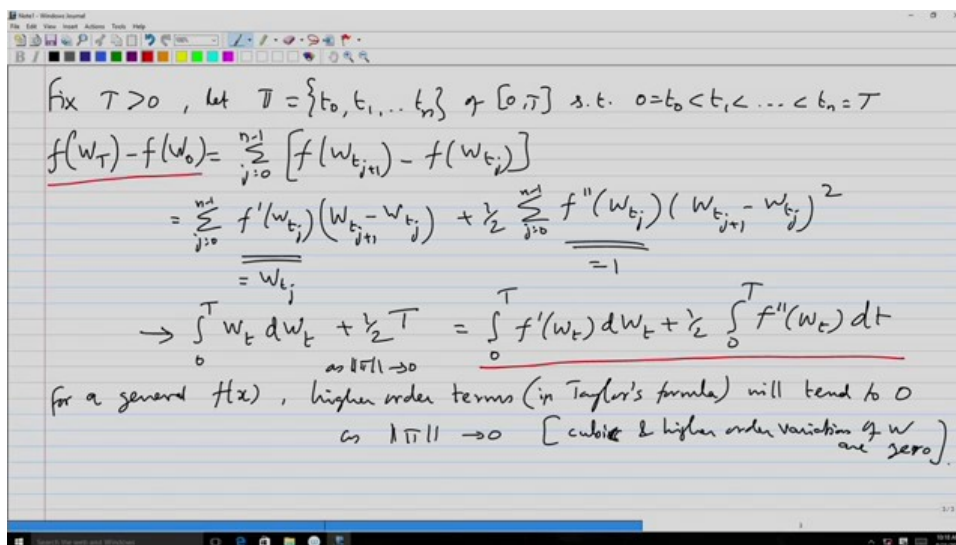 Note1 - Windows Journal
File Edit View Insert Actions Tools Help
B I
Fix T>0, let π = {t₀, t₁, .. tₙ} of [0,T] s.t. 0=t₀<t₁< ... <tₙ=T
f(W_T) - f(W₀) = Σ_{j=0}^{n-1} [f(W_{t_{j+1}}) - f(W_{t_j})]
= Σ_{j=0}^{n-1} f'(W_{t_j})(W_{t_{j+1}} - W_{t_j}) + ½ Σ_{j=0}^{n-1} f''(W_{t_j})(W_{t_{j+1}} - W_{t_j})²
= W_{t_j} =1
→ ∫₀^T W_t dW_t + ½ T = ∫₀^T f'(W_t) dW_t + ½ ∫₀^T f''(W_t) dt
as ||π|| →0
For a general f(x), higher order terms (in Taylor's formula) will tend to 0
as ||π|| →0 [cubic & higher order variation of W
are zero].
1
Search the web and Windows